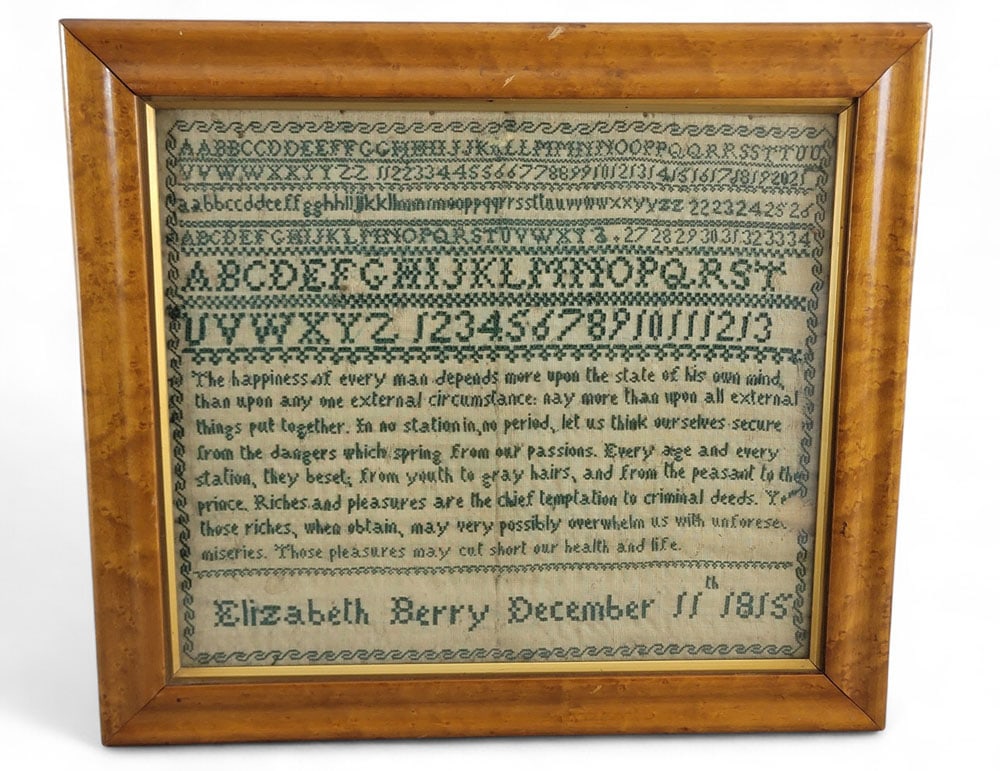 AABBCCDDEEFFGGHHIIJJKKLLMMNNOOPPQQRRSSTTUU
VVWWXXYYZZ 1122334455667788991012131415161718192021
aabbccddeeffgghhiijjkkllmmnnooppqqrrssttuuvvwwxxyyzz 2223242526
ABCDEFGHIJKLMNOPQRSTUVWXYZ 2728293031323334
ABCDEFGHIJKLMNOPQRST
UVWXYZ 12345678910111213
The happiness of every man depends more upon the state of his own mind,
than upon any one external circumstance: nay more than upon all external
things put together. In no station in, no period, let us think ourselves secure
from the dangers which spring from our passions. Every age and every
station, they beset; from youth to gray hairs, and from the peasant to the
prince. Riches and pleasures are the chief temptation to criminal deeds.
those riches, when obtain, may very possibly overwhelm us with
miseries. Those pleasures may cut short our health and life.
Elizabeth Berry December 11th 1815